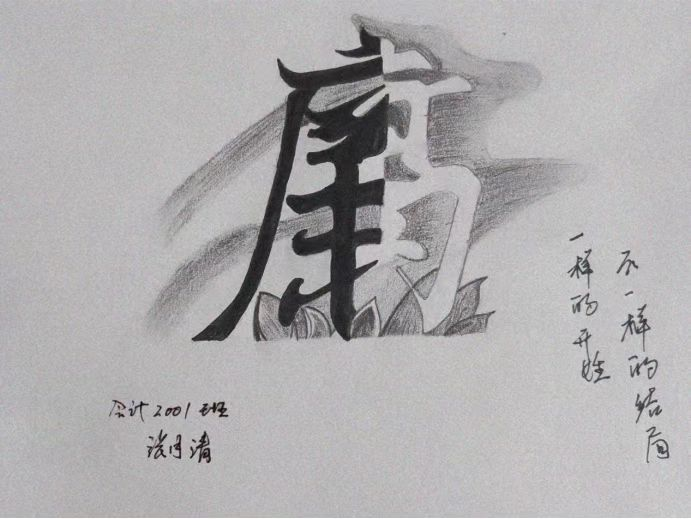 一样的开始
不一样的结局
会计2001班
月清